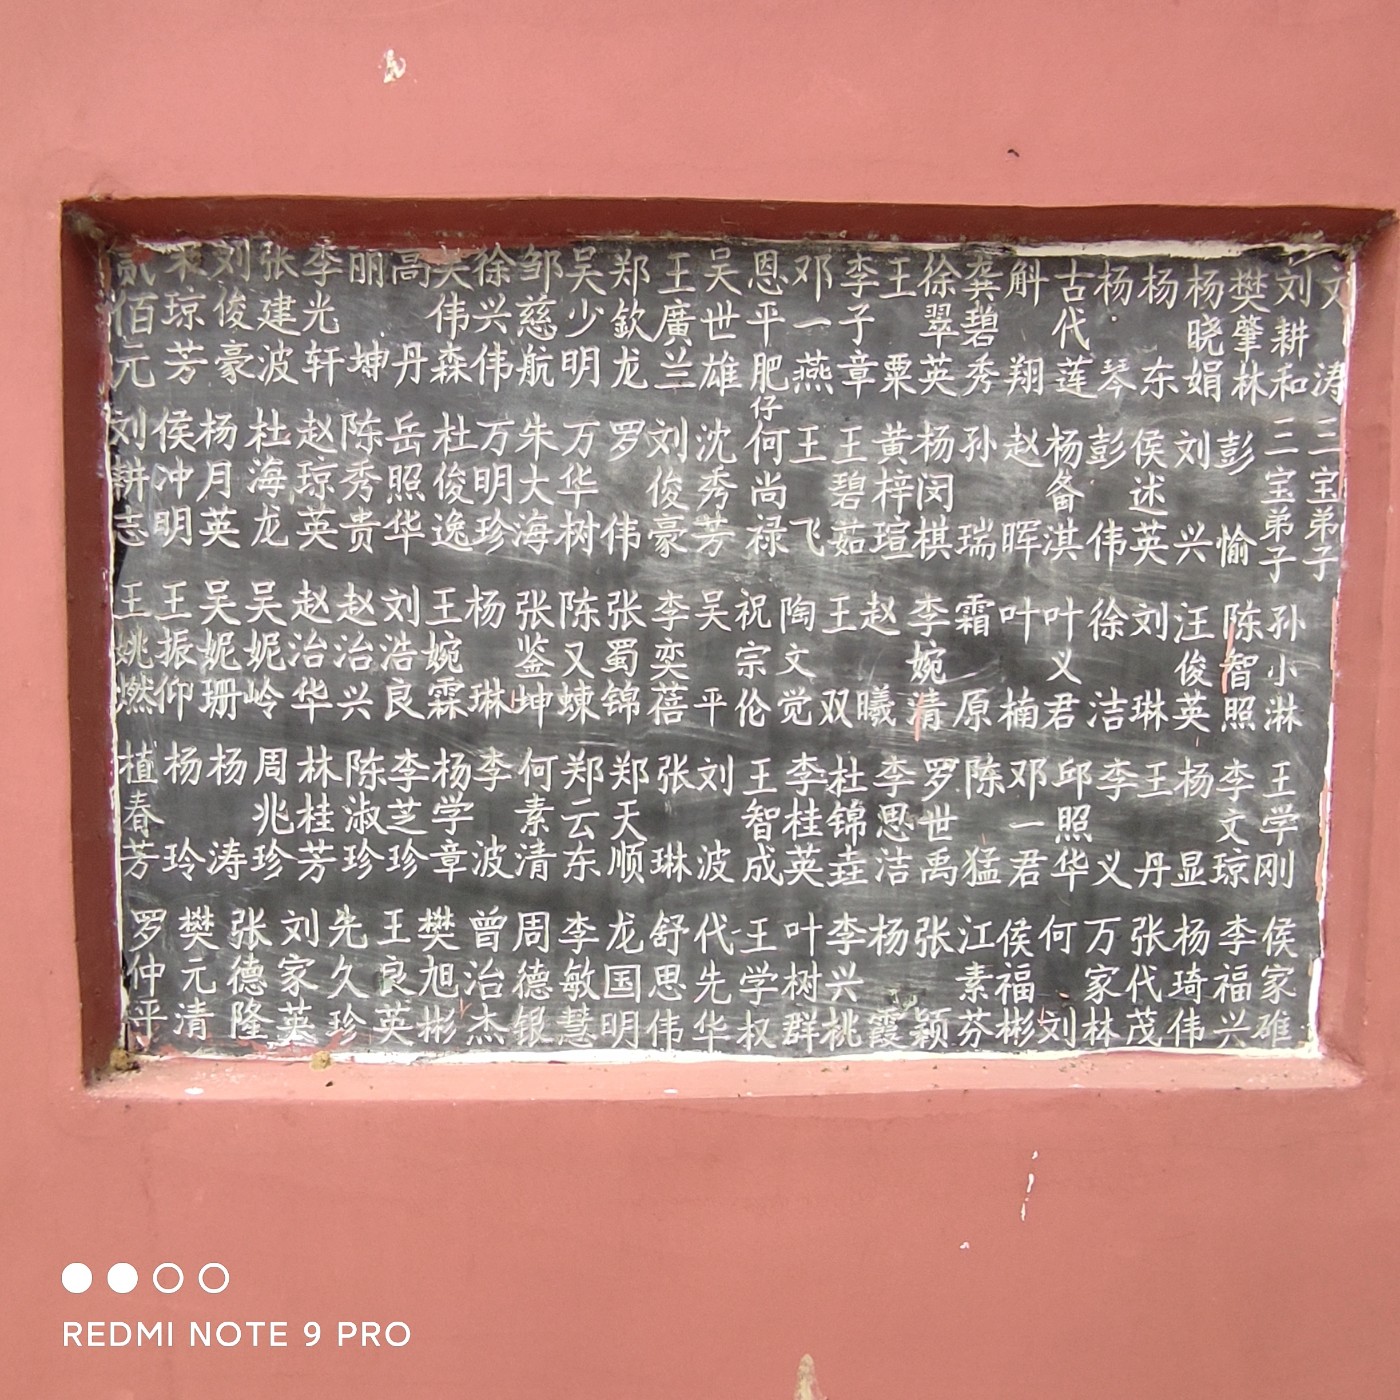 贰佰元
琼芳
刘俊豪
张建波
李光轩
丽坤
高丹
吴伟森
徐兴伟
邹慈航
吴少明
郑欽龙
王廣兰
吴世雄
恩平肥仔
邓一燕
李子章
王粟
徐翠英
龚碧秀
斛翔
古代莲
杨琴
杨东
杨晓娟
樊肇林
刘耕和
文涛
刘耕志
侯冲明
杨月英
杜海龙
赵琼英
陈秀贵
岳照华
杜俊逸
万明珍
朱大海
万华树
罗伟
刘俊豪
沈秀芳
何尚禄
王飞
王碧茹
黄梓瑄
杨闵棋
孙瑞
赵晖
杨备淇
彭伟
侯述英
刘兴
彭愉
三宝弟子
三宝弟子
王姚燃
王振仰
吴妮珊
吴妮岭
赵治华
赵治兴
刘浩良
王婉霖
杨琳
张鉴坤
陈又蝀
张蜀锦
李奕蓓
吴平
祝宗伦
陶文觉
王双
赵曦
李婉清
霜原
叶楠
叶义君
徐洁
刘琳
汪俊英
陈智照
孙小淋
植春芳
杨玲
杨涛
周兆珍
林桂芳
陈淑珍
李芝珍
杨学章
李波
何素清
郑云东
郑天顺
张琳
刘波
王智成
李桂英
杜锦垚
李思洁
罗世禹
陈猛
邓一君
邱照华
李义
王丹
杨显
李文琼
王学刚
罗仲平
樊元清
张德隆
刘家英
先久珍
王良英
樊旭彬
曾治杰
周德银
李敏慧
龙国明
舒思伟
代先华
王学权
叶树群
李兴桃
杨霞
张颖
江素芬
侯福彬
何刘
万家林
张代茂
杨琦伟
李福兴
侯家碓
REDMI NOTE 9 PRO